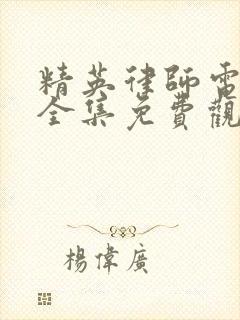 精英律師電
全集免費觀
楊偉廣